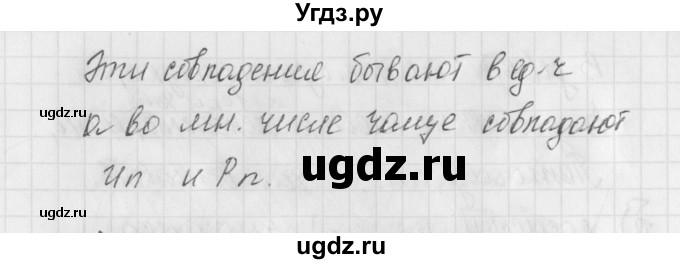 Угдз.ру
Эти совпадения бывают в ед. ч
а во мн. числе чаще совпадают
Ип и Рп.
ugdz.ru
ugdz.ru
ugdz.ru
ugdz.ru
ugdz.ru